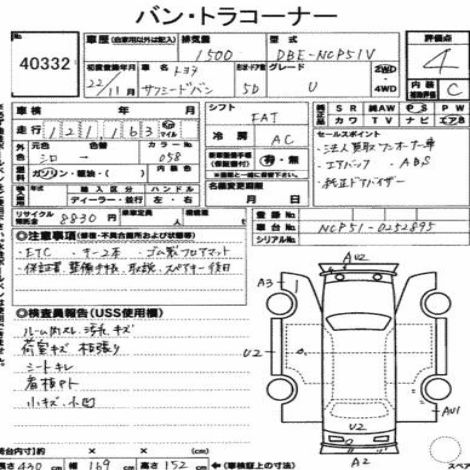 バン・トラコーナー
40332
車歴(自家用以外は記入) 排気量 1500 型式 DBE-NCP51V 評価点 4
初度登録年月 22/11月 トヨタ サクシードバン ドア 5D グレード U 2WD 4WD 内装 C
車検 年 月 シフト FAT
走行 121163 km マイル 冷房 AC
純正品 SR 純AW PS PW
カワ TV ナビ エアB
外色 元色 シロ → 色替 カラーNo. 058
燃料 ガソリン・軽油・( )
輸入車 輸入区分 ディーラー・並行 ハンドル 左・右
有・無
名義変更期限 月 日
セールスポイント
・法人買取ワンオーナー車
・エアバック ・ABS
・純正ドアバイザー
リサイクル預託金 8830円
登録No.
車台No. NCP51-0252895
シリアルNo.
◎注意事項(修復・不具合箇所および状態等)
・ETC ・キー2本 ・ゴム製フロアマット
・保証書、整備手帳、取説、スペアキー後日
◎検査員報告(USS使用欄)
ルーム内スレ 汚れ キズ
荷室キズ
シートキレ
小キズ、小凹
AU2
A3
U2
U2
AU1
A2
荷台内寸) × × (cm)
長さ 430 cm 幅 169 cm 高さ 152 cm ←(車検証上の寸法)